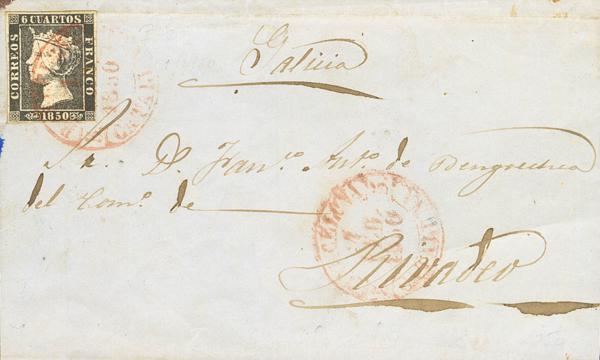 6 CUARTOS
CORREOS
FRANCO
1850
1850
Galicia
Sr. D. Fran.co Ant.o de Bengoechea
del Com.o de
Rivadeo